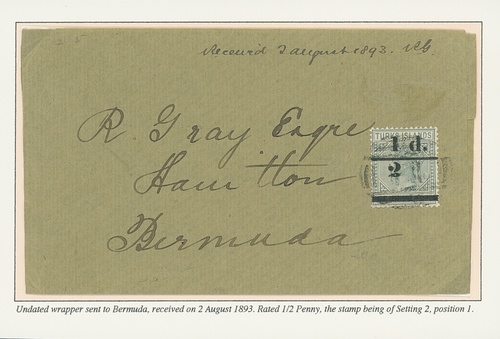 Receiv'd 2 august 1893. RG.
R. Gray Esqre
Hamilton
Bermuda
TURKS ISLANDS
1 d.
2
Undated wrapper sent to Bermuda, received on 2 August 1893. Rated 1/2 Penny, the stamp being of Setting 2, position 1.